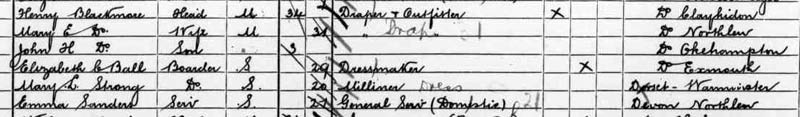 Henry Blackmore Head M 34 Draper & Outfitter X Do Clayhidon
Mary E Do Wife M 31 " Drap Do Northlew
John H Do Son 3 Do Okehampton
Elizabeth C Ball Boarder S 29 Dressmaker X Do Exmouth
Mary L Strong Do S. 20 Milliner Dress Dorset - Warminster
Emma Sanders Serv S 21 General Serv (Domestic) Devon Northlew